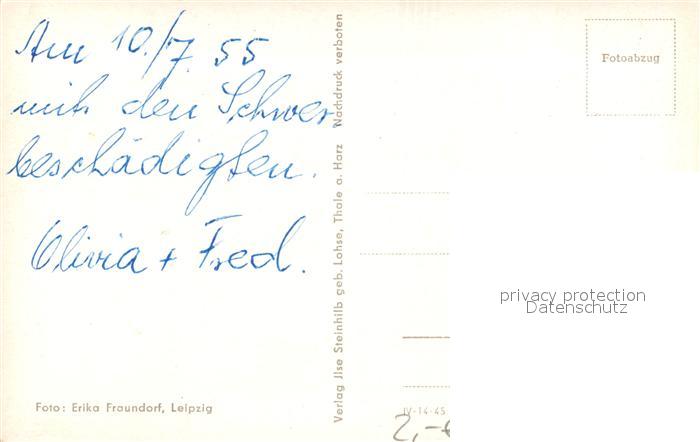 Am 10./7. 55
mit den Schwer
beschädigten.
Olivia + Fred.
Foto: Erika Fraundorf, Leipzig
Verlag Jlse Steinhilb geb. Lohse, Thale a. Harz Nachdruck verboten
Fotoabzug
privacy protection
Datenschutz
IV-14-45
2,-